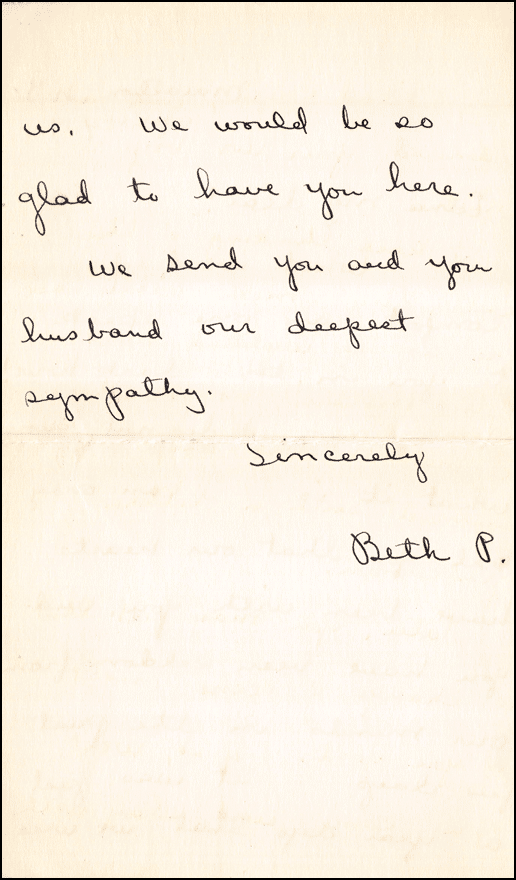 us. We would be so
glad to have you here.
We send you and your
husband our deepest
sympathy.
Sincerely
Beth P.